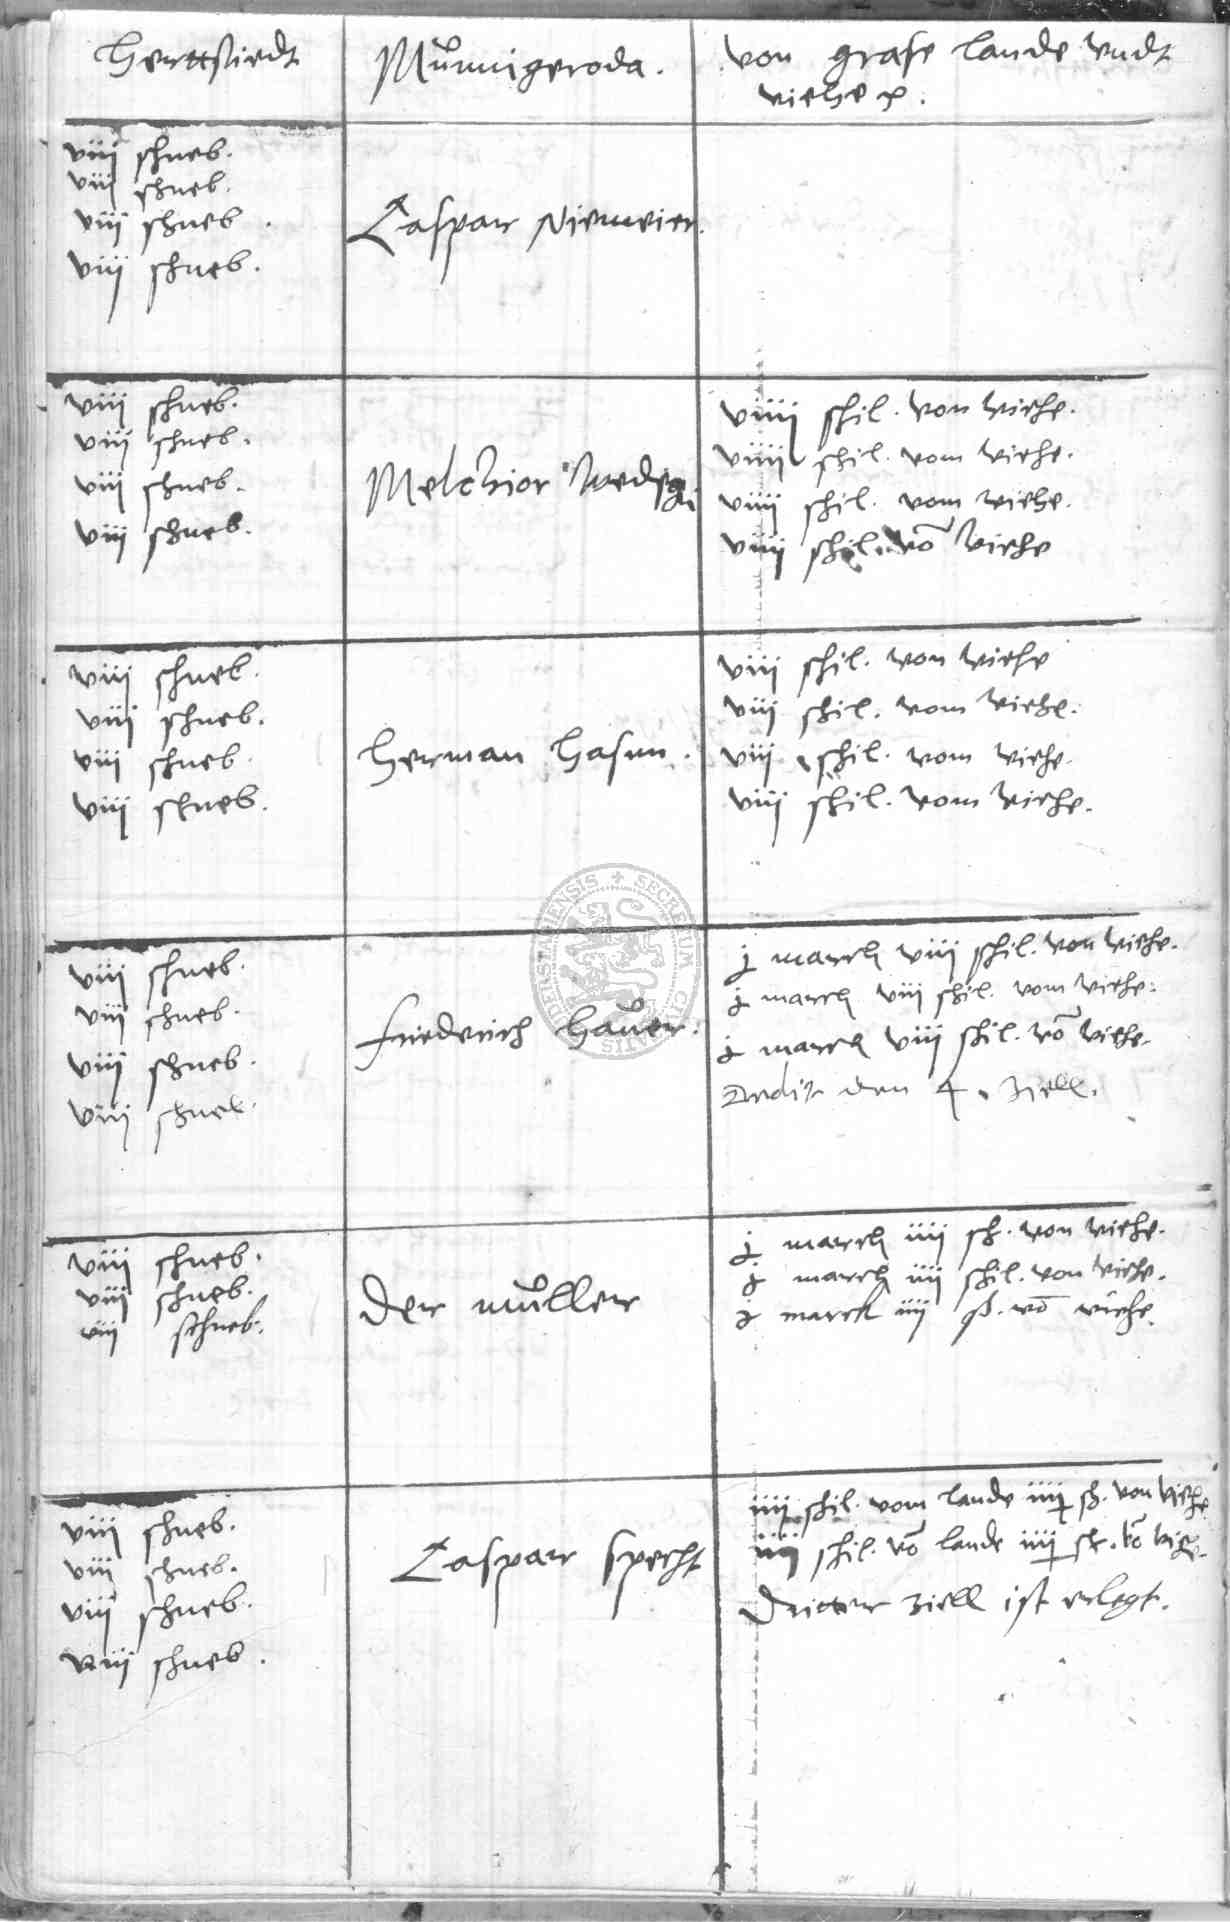 Herttstiedt
Munnigeroda.
von grase lande vndt
viehe
viij schneb.
viij schneb.
viij schneb.
viij schneb.
Caspar Niemeier.
viij schneb.
viij schneb.
viij schneb.
viij schneb.
Melchior
viiij schil. von viehe.
viiij schil. vom viehe.
viiij schil. vom viehe.
viiij schil. võ viehe
viij schneb.
viij schneb.
viij schneb.
viij schneb.
Herman Hasun.
viij schil. von viehe
viij schil. vom viehe.
viij schil. vom viehe.
viij schil. vom viehe.
viij schneb.
viij schneb.
viij schneb.
viij schneb.
Friederich Hauer.
j march viij schil. von viehe.
j march viij schil. vom viehe.
j march viij schil. võ viehe.
Dedit den 4. Ziell.
viij schneb.
viij schneb.
viij schneb.
Der muller
j march iiij sch. von viehe.
j march iiij schil. von viehe.
j marck iiij ß. võ viehe.
viij schneb.
viij schneb.
viij schneb.
viij schneb.
Caspar Specht
iiij schil. vom lande iiij sch. von viehe.
iiij schil. võ lande iiij sch. võ viehe.
Dritter Ziell ist erlegt.
SECRETUM CIVITATIS